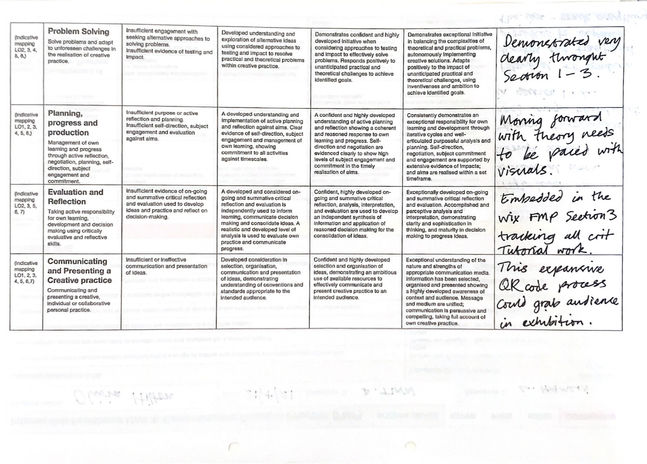 (Indicative
mapping
LO2, 3, 4,
5, 6,)
Problem Solving
Solve problems and adapt
to unforeseen challenges in
the realisation of creative
practice.
Insufficient engagement with
seeking alternative approaches to
solving problems.
Insufficient evidence of testing and
impact.
Developed understanding and
exploration of alternative ideas
using considered approaches to
testing and impact to resolve
practical and theoretical problems
within creative practice.
Demonstrates confident and highly
developed initiative when
considering approaches to testing
and impact to effectively solve
problems. Responds positively to
unanticipated practical and
theoretical challenges to achieve
identified goals.
Demonstrates exceptional initiative
in balancing the complexities of
theoretical and practical problems,
autonomously implementing
creative solutions. Adapts
positively to the impact of
unanticipated practical and
theoretical challenges, using
inventiveness and ambition to
achieve identified goals.
Demonstrated very
clearly throughout
Section 1-3.
(Indicative
mapping
LO1, 2, 3,
4, 5, 6,)
Planning,
progress and
production
Management of own
learning and progress
through active reflection,
negotiation, planning, self-
direction, subject
engagement and
commitment.
Insufficient purpose or active
reflection and planning
Insufficient self-direction, subject
engagement and evaluation
against aims.
A developed understanding and
implementation of active planning
and reflection against aims. Clear
evidence of self-direction, subject
engagement and management of
own learning, showing
commitment to all activities
against timescales
A confident and highly developed
understanding of active planning
and reflection showing a coherent
and reasoned response to own
learning and progress. Self-
direction and negotiation are
evidenced clearly to show high
levels of subject engagement and
commitment in the timely
realisation of aims.
Consistently demonstrate an
exceptional responsibility for own
learning and development through
iterative cycles and well-
articulated purposeful analysis and
planning. Self-direction,
negotiation, subject commitment
and engagement are supported by
extensive evidence of impacts;
and aims are realised within a set
timeframe.
Moving forward
with theory needs
to be paced with
visuals.
(Indicative
mapping
LO2, 3, 5,
6, 7)
Evaluation and
Reflection
Taking active responsibility
for own learning,
development and decision
making using critically
evaluative and reflective
skills.
Insufficient evidence of on-going
and summative critical reflection
and evaluation used to develop
ideas and practice and reflect on
decision making.
A developed and considered on-
going and summative critical
reflection and evaluation is
independently used to inform
learning, communicate decision
making and consolidate ideas. A
realistic and developed level of
analysis is used to evaluate own
practice and communicate
progress.
Confident, highly developed on-
going and summative critical
reflection, analysis, interpretation,
and evaluation are used to develop
an independent synthesis of
effective communication of
reasoned decision making for the
consolidation of ideas.
Exceptionally developed on-going
and summative critical reflection
and evaluation. Accomplished and
perceptive analysis and
interpretation, demonstrating
clarity and sophistication in
thinking, and maturity in decision
making to progress ideas.
Embedded in the
wix FMP Section 3
tracking all crit
Tutorial work.
(Indicative
mapping
LO1, 2, 3,
4, 5, 6,7)
Communicating
and Presenting a
Creative practice
Communicating and
presenting a creative,
individual or collaborative
personal practice.
Insufficient or ineffective
communication and presentation
of ideas.
Developed consideration in
selection, organisation,
communication and presentation
of ideas, demonstrating
understanding of conventions and
standards appropriate to the
intended audience.
Confident and highly developed
selection and organisation of
ideas, demonstrating an ambitious
use of available resources to
effectively communicate and
present creative practice to an
intended audience.
Exceptional understanding of the
nature and strengths of
appropriate communication media.
Information has been selected,
organised and presented showing
a highly developed awareness of
context and audience. Message
and medium are unified;
communication is persuasive and
compelling, taking full account of
own creative practice.
This expansive
QR code process
could grab audience
in exhibition.